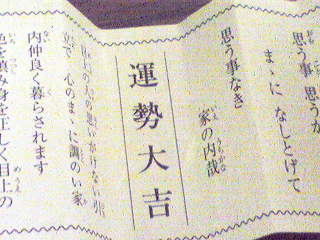 思う事 思うが
まゝに なしとげて
思う事なき
家の内哉
運勢大吉
の人の思いがけない引
立で 心のまゝに調のい家
内仲良く暮らされます
色を慎み身を正しく目上の